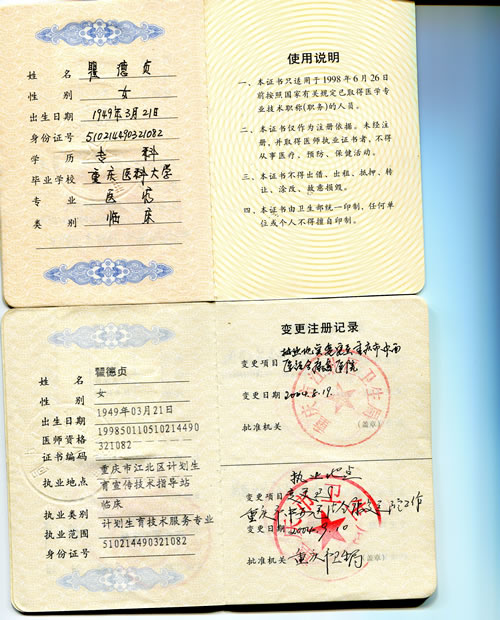 姓 名 瞿德贞
性 别 女
出生日期 1949年3月21日
身份证号 510214490321082
学 历 专科
毕业学校 重庆医科大学
专 业 医疗
类 别 临床
使用说明
一、本证书只适用于1998年6月26日
前按照国家有关规定已取得医学专
业技术职称(职务)的人员。
二、本证书仅作为注册依据。未经注
册、并取得医师执业证书者，不得
从事医疗、预防、保健活动。
三、本证书不得出借、出租、抵押、转
让、涂改、故意损毁。
四、本证书由卫生部统一印制，任何单
位或个人不得擅自印制。
姓 名 瞿德贞
性 别 女
出生日期 1949年03月21日
医师资格 199850110510214490
证书编码 321082
执业地点 重庆市江北区计划生
育宣传技术指导站
执业类别 临床
执业范围 计划生育技术服务专业
身份证号 510214490321082
变更注册记录
变更项目
变更日期 2004.5.19.
批准机关 (盖章)
执业地点
变更项目
变更日期
批准机关 重庆 (盖章)